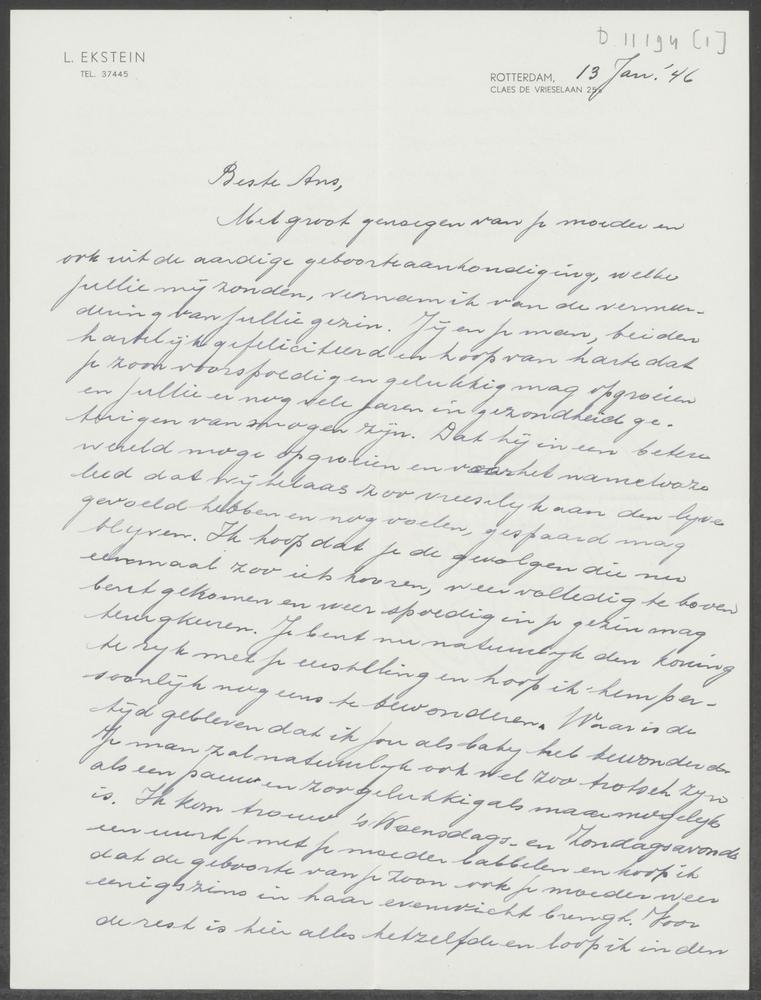 D 11194 [1]
L. EKSTEIN
TEL. 37445
ROTTERDAM, 13 Jan. '46
CLAES DE VRIESELAAN 25
Beste Ans,
Met groot genoegen van je moeder en
ook uit de aardige geboorteaankondiging, welke
jullie mij zonden, vernam ik van de vermeer-
dering van jullie gezin. Jij en je man, beiden
hartelijk gefeliciteerd en hoop van harte dat
je zoon voorspoedig en gelukkig mag opgroeien
en jullie er nog vele jaren in gezondheid ge-
tuigen van mogen zijn. Dat hij in een betere
wereld moge opgroeien en voor het namelooze
leed dat wij helaas zoo vreeselijk aan den lijve
gevoeld hebben en nog voelen, gespaard mag
blijven. Ik hoop dat je de gevolgen die nu
eenmaal zoo iets hooren, weer volledig te boven
bent gekomen en weer spoedig in je gezin mag
terugkeeren. Je bent nu natuurlijk den koning
te rijk met je eersteling en hoop ik hem per-
soonlijk nog eens te bewonderen. Waar is de
tijd gebleven dat ik jou als baby heb bewonderd.
Je man zal natuurlijk ook wel zoo trotsch zijn
als een pauw en zoo gelukkig als maar mogelijk
is. Ik kom trouw 's Woensdags- en Zondagsavonds
een uurtje met je moeder babbelen en hoop ik
dat de geboorte van je zoon ook je moeder weer
eenigszins in haar evenwicht brengt. Voor
de rest is hier alles hetzelfde en loop ik in den